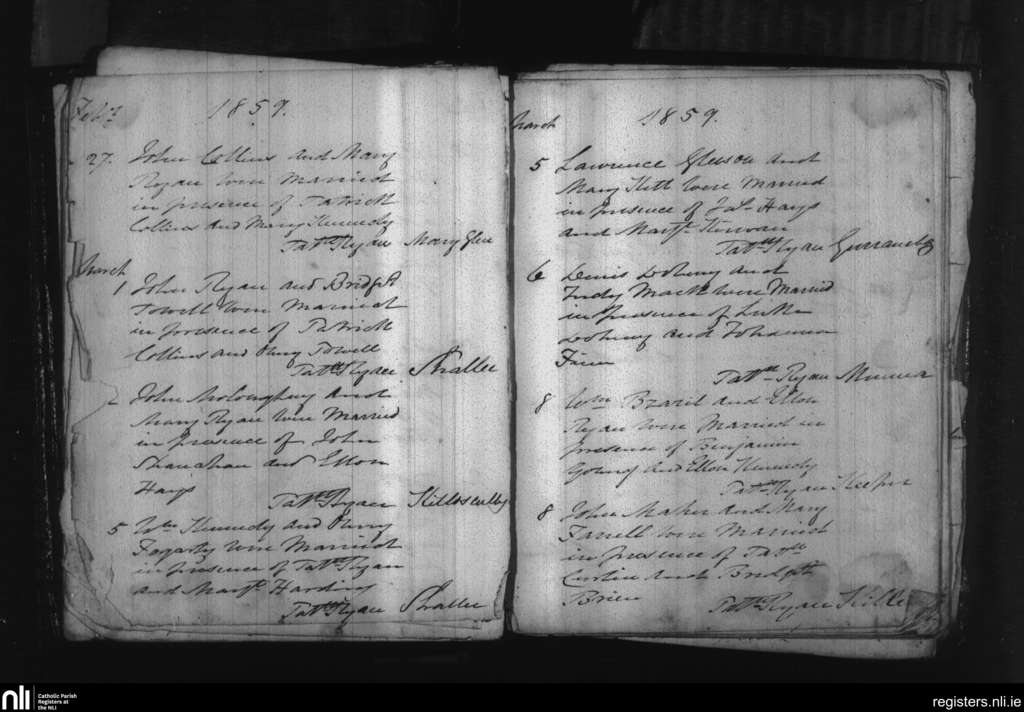 Feby 1859.
27. John Collins and Mary
Ryan were Married
in presence of Patrick
Collins and Mary Kennedy
Patk Ryan Mary Glen
March
1 John Ryan and Bridget
Powell were Married
in presence of Patrick
Collins and Powell
Patk Ryan Shallee
2 John and
Mary Ryan were Married
in presence of John
Shanahan and Ellen
Hays
Patk Ryan Killoscully
5 Wm Kennedy and
Fogarty were Married
in presence of Patk Ryan
and Margt Harding
Patk Ryan Shallee
March 1859.
5 Lawrence Gleeson and
Mary were Married
in presence of Jas Hays
and Margt
Patk Ryan
6 Denis Doheny and
Judy Mack were Married
in presence of Luke
Doheny and Johanna
Patk Ryan
8 Wm and Ellen
Ryan were Married in
presence of Benjamin
Young and Ellen Kennedy
Patk Ryan Keeper
8 John Maher and Mary
Farrell were Married
in presence of
and Bridget
Brien
Patk Ryan
nli Catholic Parish
Registers at
the NLI
registers.nli.ie